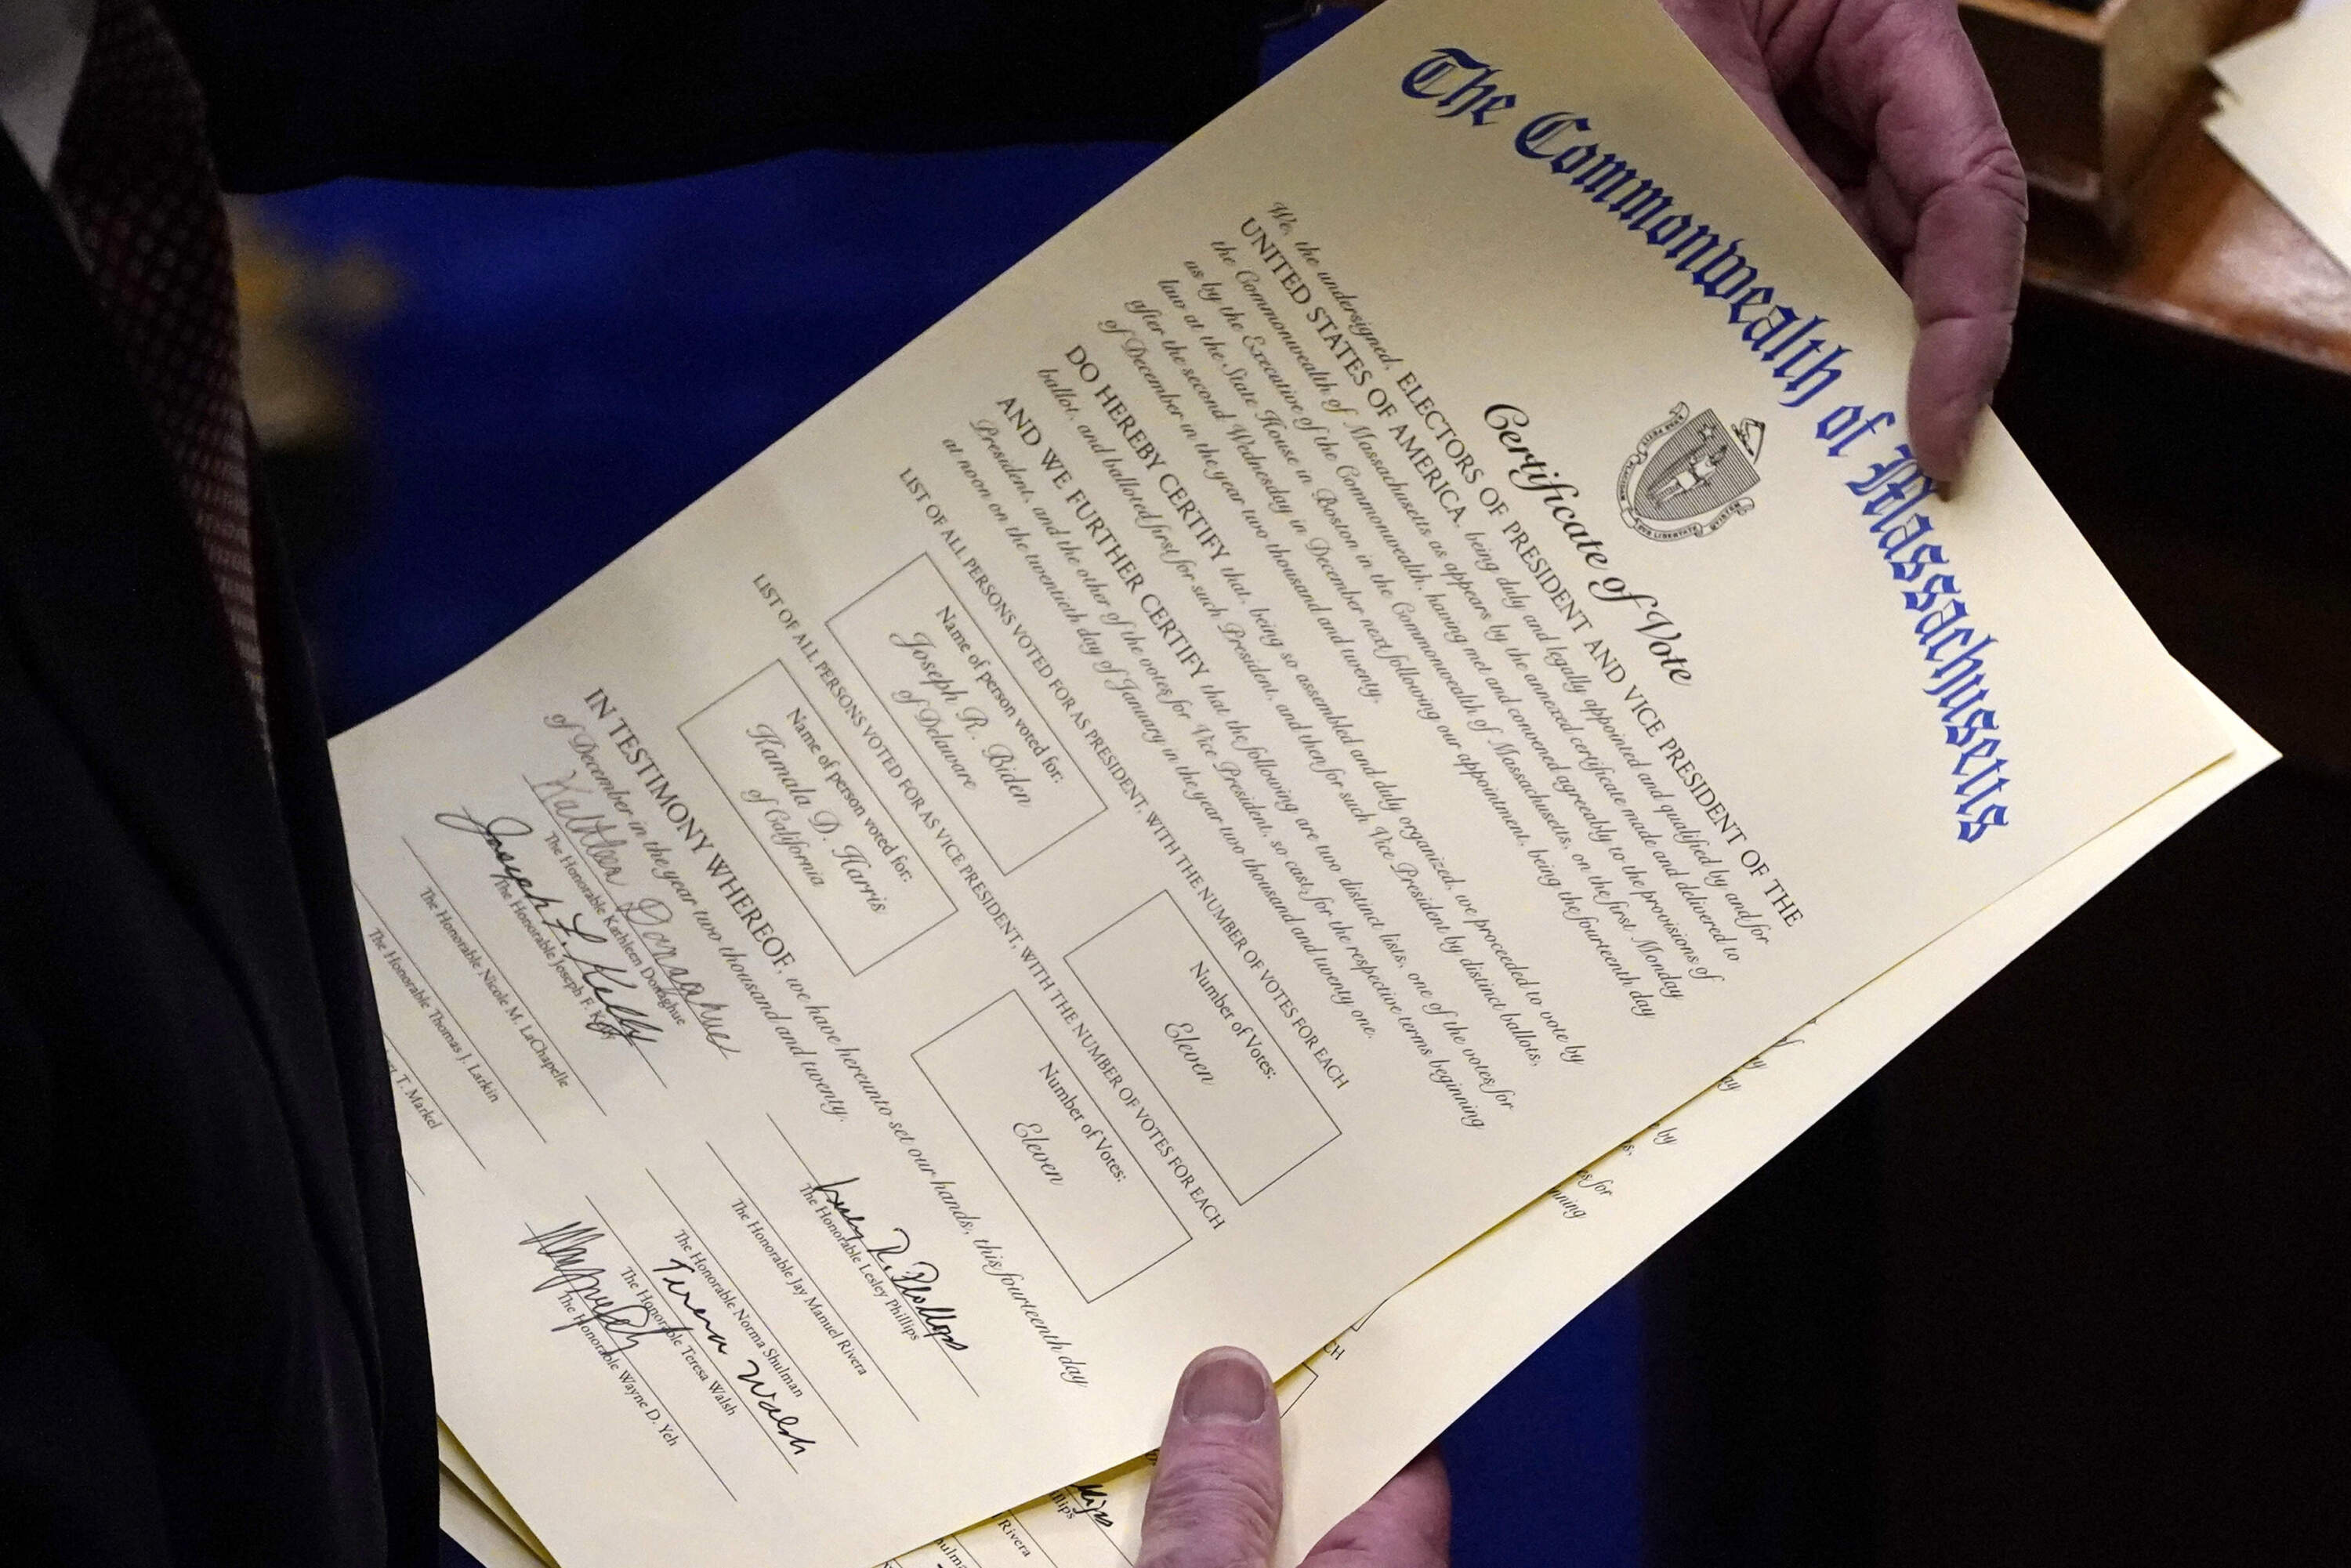 The Commonwealth of Massachusetts
Certificate of Vote
We, the undersigned, ELECTORS OF PRESIDENT AND VICE PRESIDENT OF THE
UNITED STATES OF AMERICA, being duly and legally appointed and qualified by and for
the Commonwealth of Massachusetts as appears by the annexed certificate made and delivered to
us by the Executive of the Commonwealth, having met and convened agreeably to the provisions of
law at the State House in Boston in the Commonwealth of Massachusetts, on the first Monday
after the second Wednesday in December next following our appointment, being the fourteenth day
of December in the year two thousand and twenty.
DO HEREBY CERTIFY that, being so assembled and duly organized, we proceeded to vote by
ballot, and balloted first for such President, and then for such Vice President by distinct ballots,
AND WE FURTHER CERTIFY that the following are two distinct lists, one of the votes for
President, and the other of the votes for Vice President, so cast, for the respective terms beginning
at noon on the twentieth day of January in the year two thousand and twenty one.
LIST OF ALL PERSONS VOTED FOR AS PRESIDENT, WITH THE NUMBER OF VOTES FOR EACH
Name of person voted for:
Joseph R. Biden
of Delaware
Number of Votes:
Eleven
LIST OF ALL PERSONS VOTED FOR AS VICE PRESIDENT, WITH THE NUMBER OF VOTES FOR EACH
Name of person voted for:
Kamala D. Harris
of California
Number of Votes:
Eleven
IN TESTIMONY WHEREOF, we have hereunto set our hands, this fourteenth day
of December in the year two thousand and twenty.
Kathleen Donaghue
The Honorable Kathleen Donaghue
Joseph F. Kelly
The Honorable Joseph F. Kelly
The Honorable Nicole M. LaChapelle
The Honorable Thomas J. Larkin
T. Markel
Lesley R. Phillips
The Honorable Lesley Phillips
The Honorable Jay Manuel Rivera
The Honorable Norma Shulman
Teresa Walsh
The Honorable Teresa Walsh
The Honorable Wayne D. Yeh
by
for
CH
Rivera